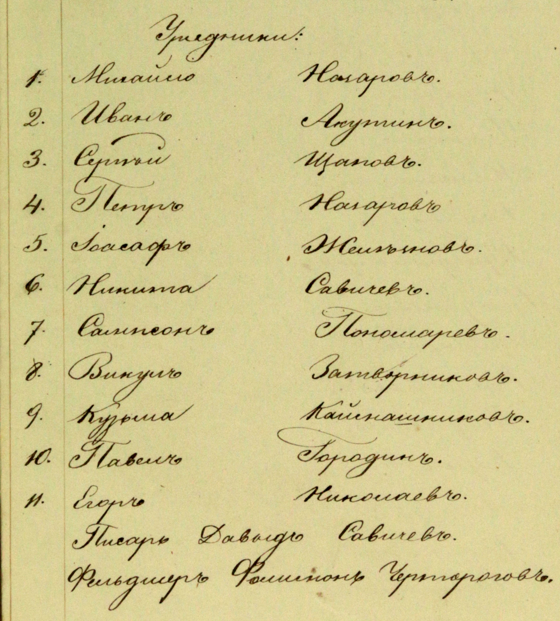 Урядники:
1. Михайло Назаровъ.
2. Иванъ Акутинъ.
3. Сергѣй Щаповъ.
4. Петръ Назаровъ
5. Іоасафъ Желѣзновъ.
6. Никита Савичевъ.
7. Сампсонъ Пономаревъ.
8. Викулъ Затворниковъ.
9. Кузьма Кайснашниковъ.
10. Павелъ Бородинъ.
11. Егоръ Николаевъ.
Писарь Давыдъ Савичевъ.
Фельдшеръ Филимонъ Чертороговъ.